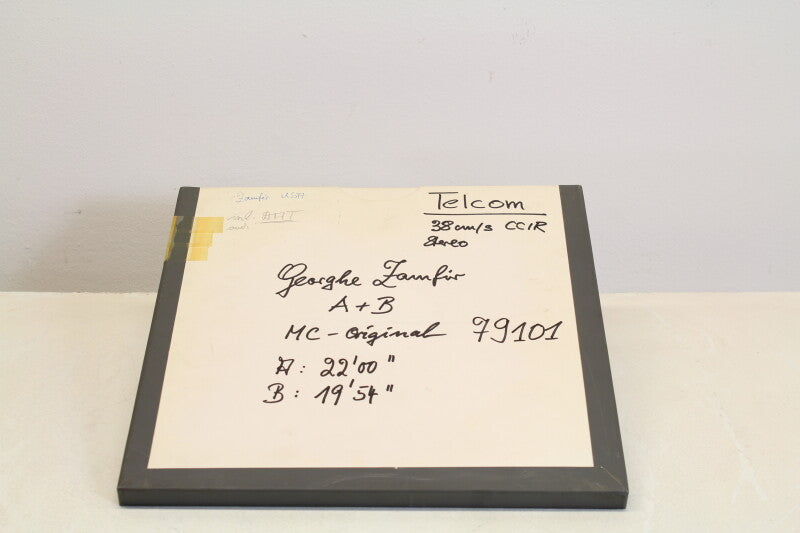 Zamfir USA
Telcom
38 cm/s CCIR
Stereo
Georghe Zamfir
A + B
MC - Original 79101
A: 22'00"
B: 19'54"